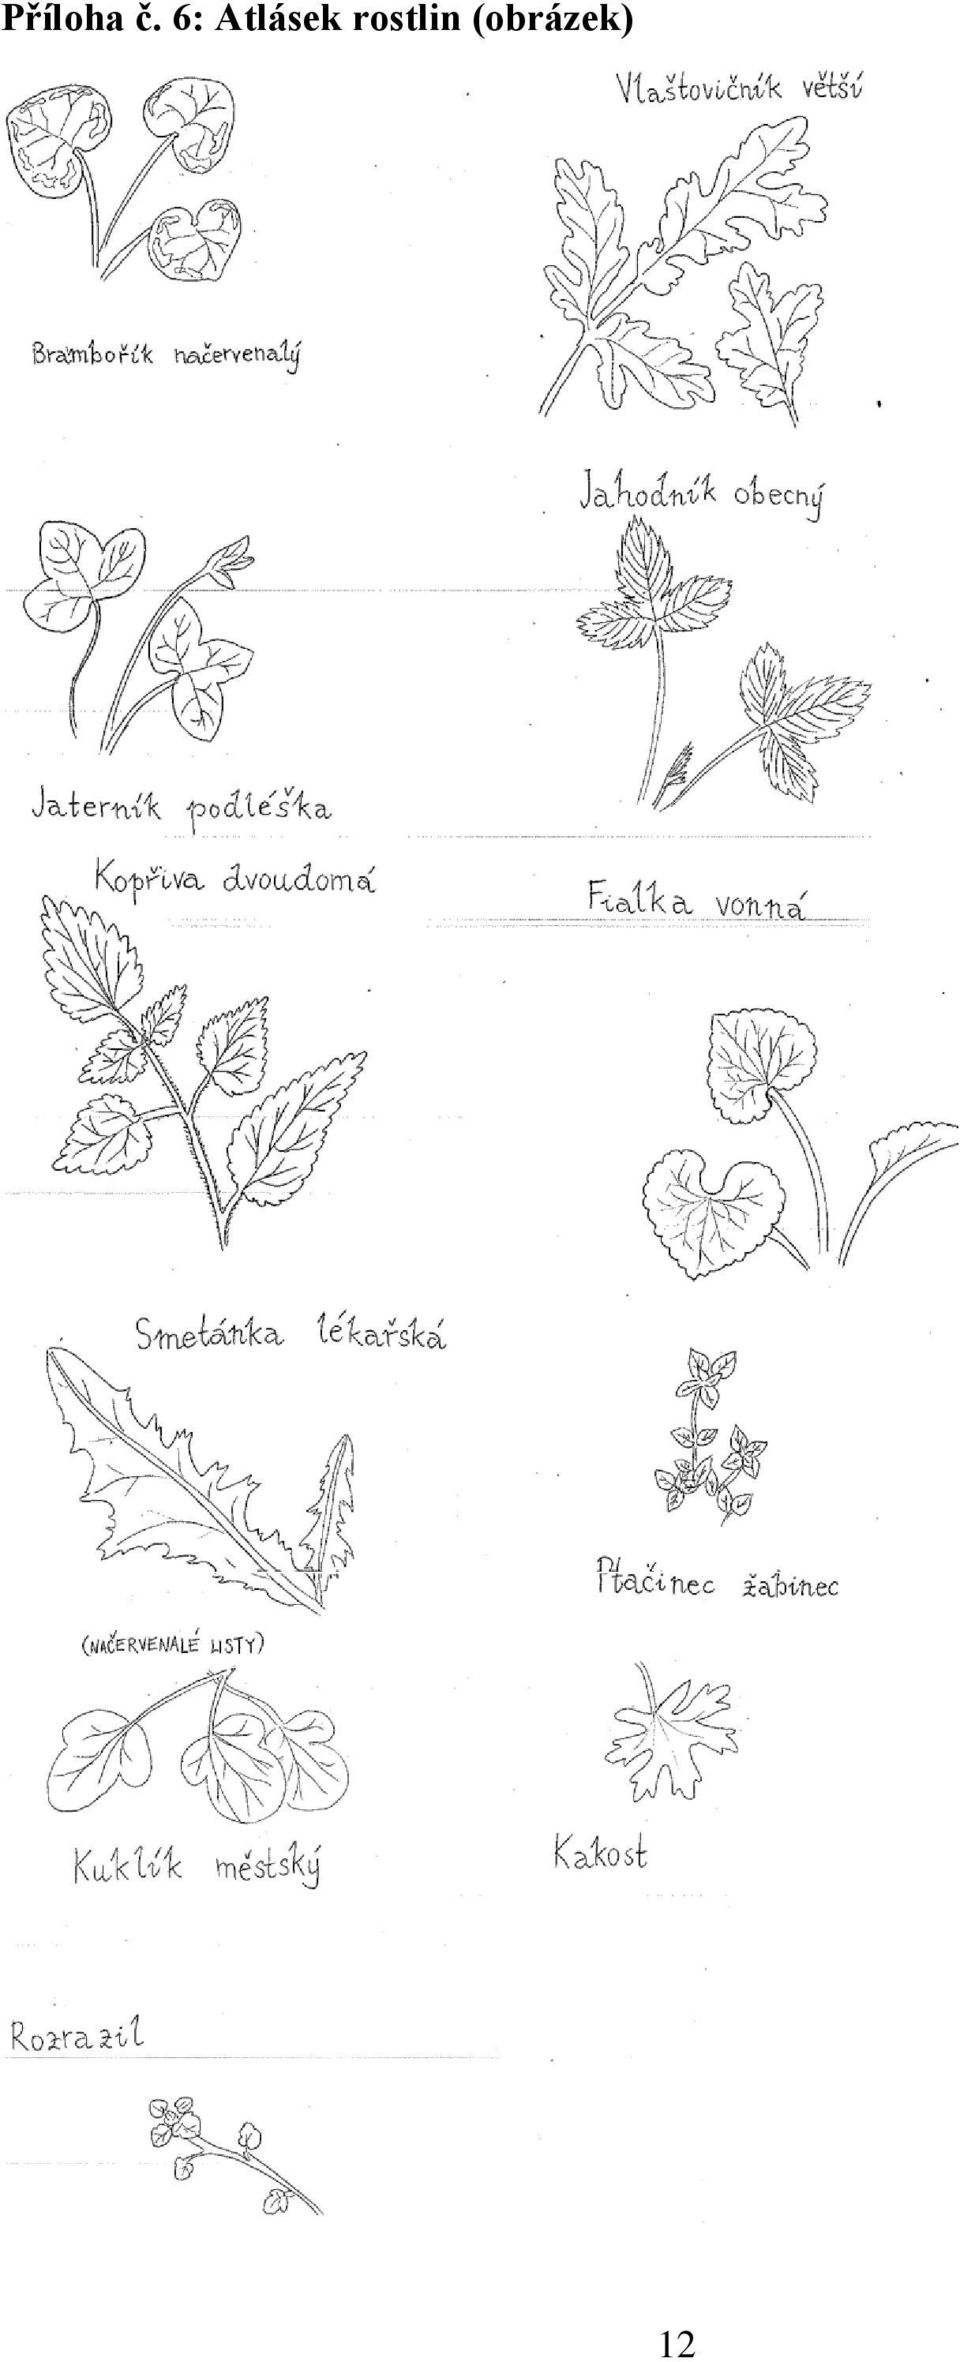 Příloha č. 6: Atlásek rostlin (obrázek)
Vlaštovičník větší
Brambořík načervenalý
Jahodník obecný
Jaterník podléška
Kopřiva dvoudomá
Fialka vonná
Smetánka lékařská
Ptačinec žabinec
(NAČERVENALÉ LISTY)
Kuklík městský
Kakost
Rozrazil
12